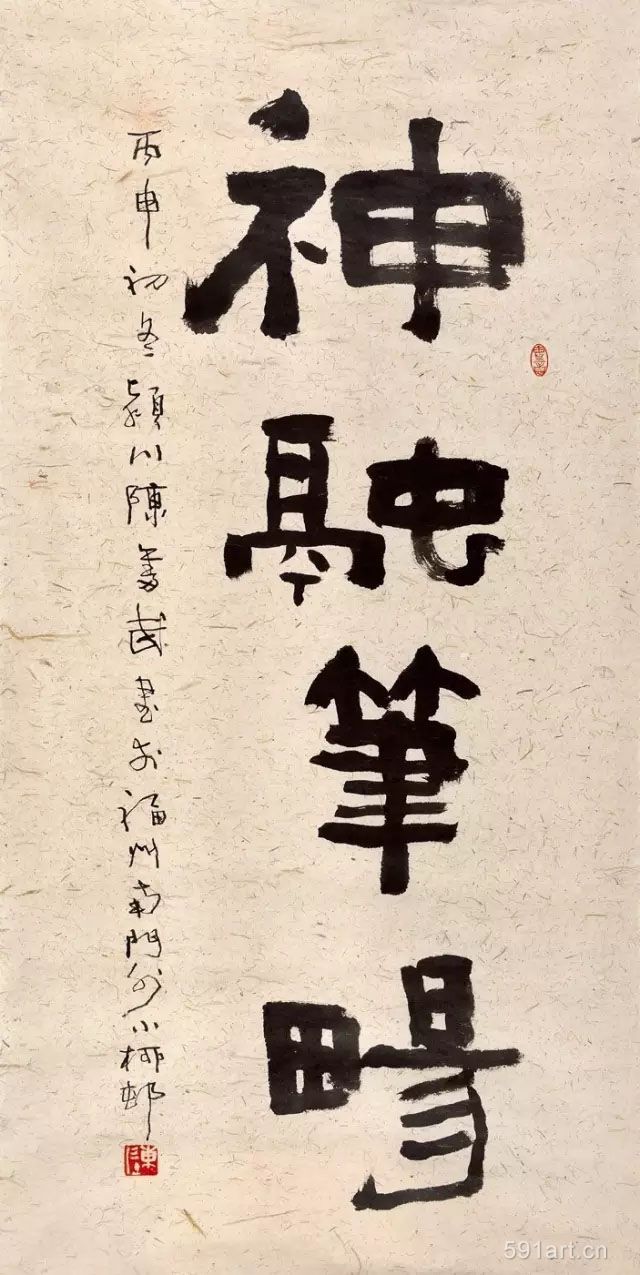 神融筆畼
丙申初冬潁川陳奮武書於福州南門外小柳邨
陳
591art.cn